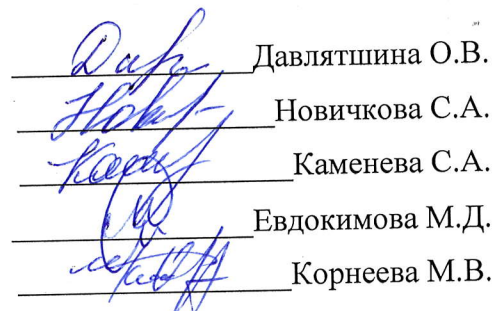 Давлятшина О.В.
Новичкова С.А.
Каменева С.А.
Евдокимова М.Д.
Корнеева М.В.